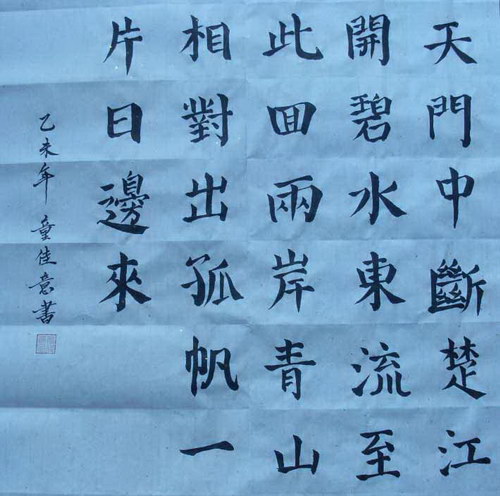 天門中斷楚江
開碧水東流至
此回兩岸青山
相對出孤帆一
片日邊來
乙未年童佳意書